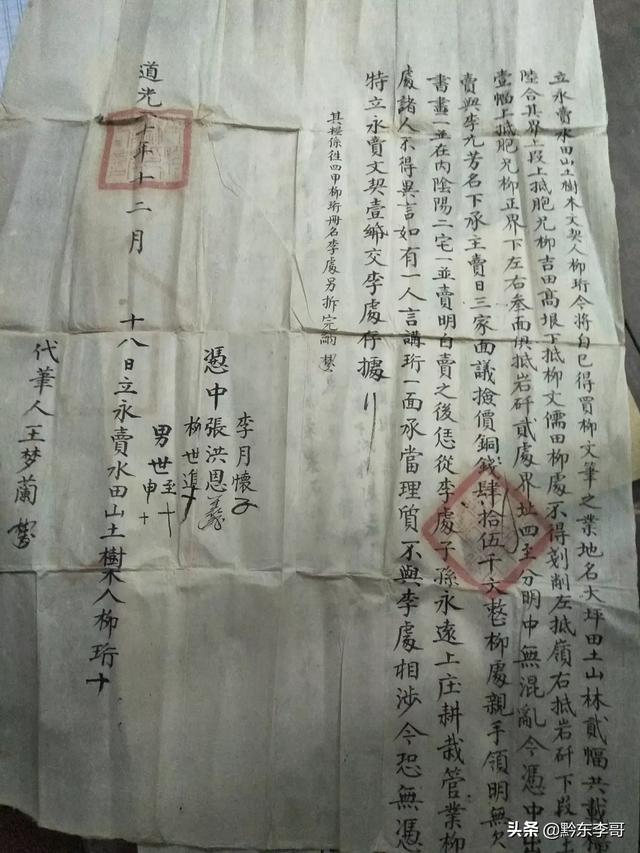 立永賣水田山土樹木文契人柳珩今將自己得買柳文筆之業地名大坪田土山林貳幅共載種
陸合其界上段上抵胞兄柳吉田高埌下抵柳文儒田柳處不得刻削左抵嶺右抵岩矸下段土
壹幅上抵胞兄柳正界下左右叁面俱抵岩矸貳處界址四至分明中無混亂今憑中出
賣與李九芳名下承主賣日三家面議撿價銅錢肆拾伍千文整柳處親手領明無欠
書畫一並在內陰陽二宅一並賣明白賣之後恁從李處子孫永遠上庄耕栽管業柳
處諸人不得異言如有一人言講珩一面承當理質不與李處相涉今恐無憑
特立永賣文契壹紙交李處存據
其糧係徃四甲柳珩冊名李處另拆完納
李月懷
憑中張洪恩
柳世進
男世至十
申十
道光 十年十二月 十八日立永賣水田山土樹木人柳珩十
代筆人王梦蘭
头条 @黔东李哥